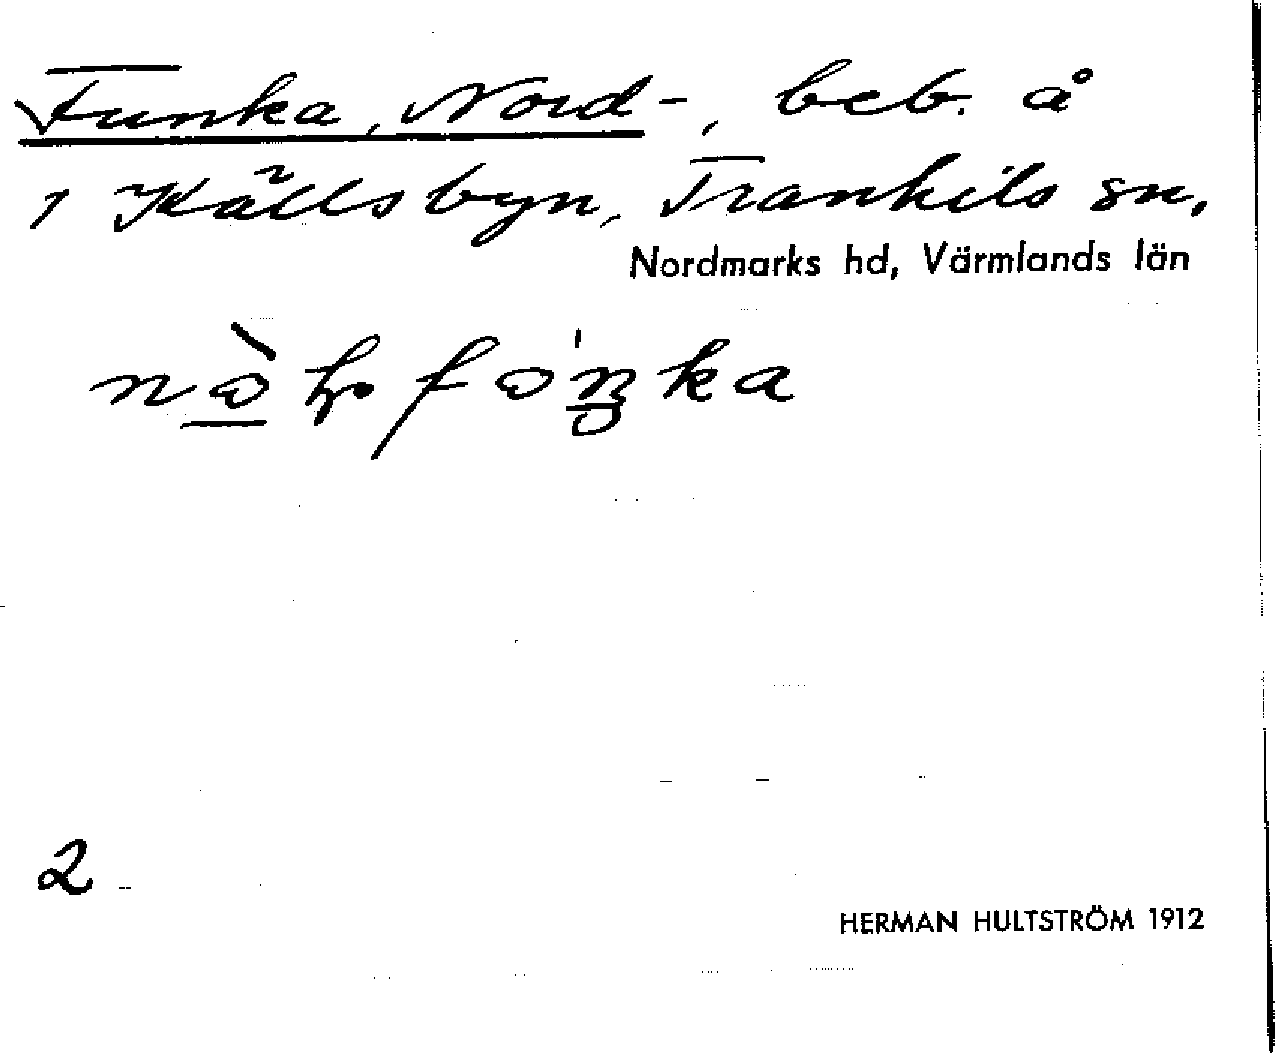 Funka, Nord-, beb. å
1 Källsbyn, Trankils sn,
Nordmarks hd, Värmlands län
2
HERMAN HULTSTRÖM 1912